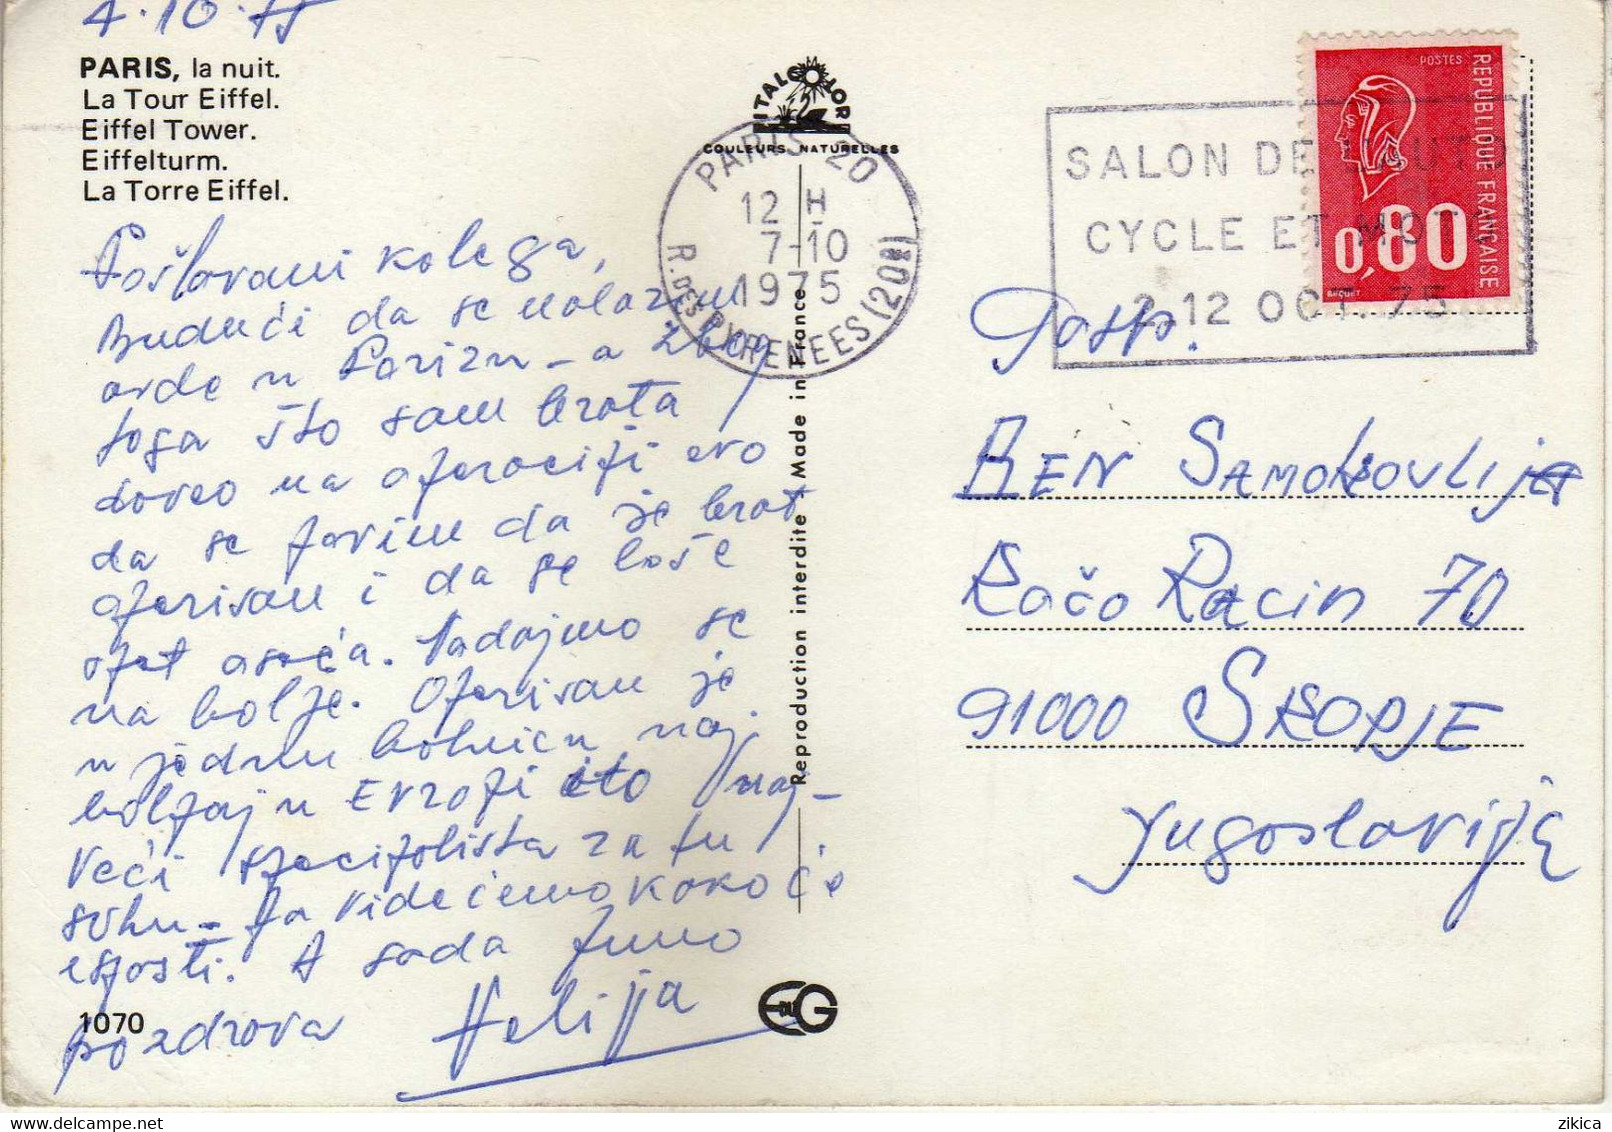 4.10.75
PARIS, la nuit.
La Tour Eiffel.
Eiffel Tower.
Eiffelturm.
La Torre Eiffel.
Poštovani kolega,
Budući da se nalazim
ovde u Parizu - a zbog
toga što sam brata
doveo na operaciji evo
da se javim da je brat
operisan i da se loše
opet oseća. Nadajmo se
na bolje. Operisan je
u jednu bolnicu naj-
boljaj u Evropi i to naj-
veći specijalista za tu
suhu - Pa videćemo kako će
ispasti. A sada puno
pozdrava Helijja
1070
ITALCOLOR
COULEURS NATURELLES
PARIS 20
12 H
7-10
1975
R. DES PYRENEES (20E)
Reproduction interdite Made in France
EDUG
SALON DE L'AUTO
CYCLE ET MOTO
2-12 OCT. 75
POSTES
REPUBLIQUE FRANÇAISE
0,80
BEQUET
Gosp.
BEN SAMOKOVLIJA
Kočo Racin 70
91000 SKOPJE
Jugoslavija
zikica